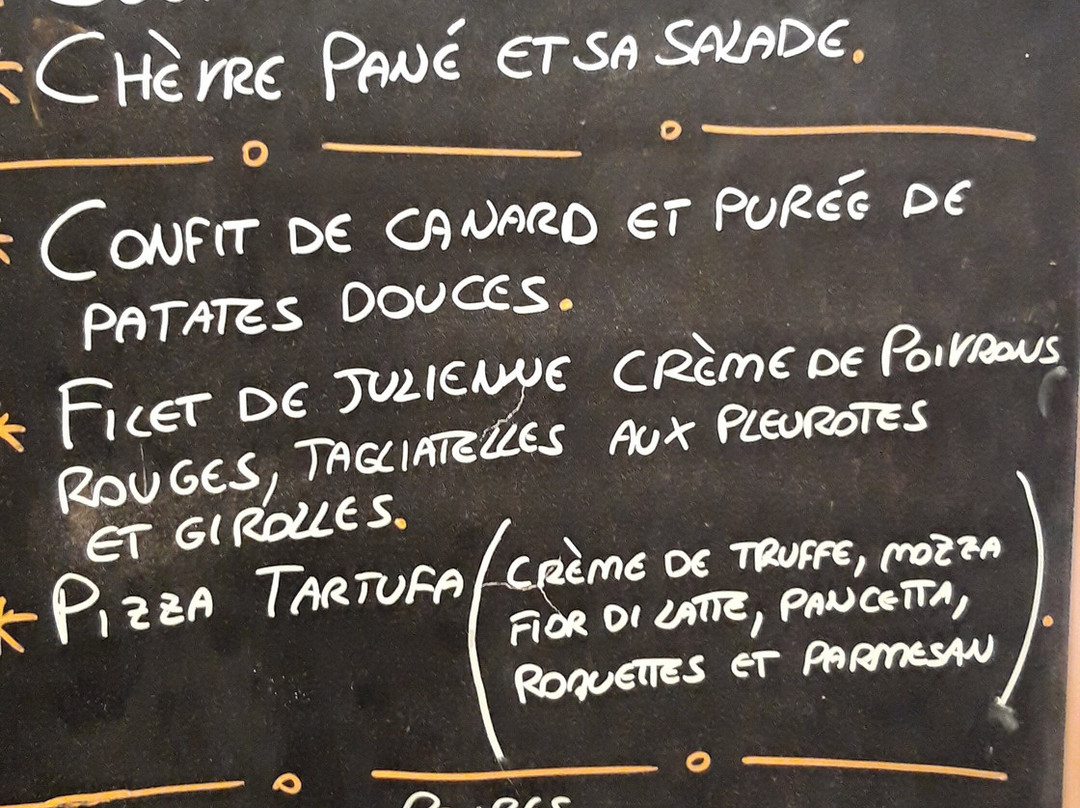 CHÈVRE PANÉ ET SA SALADE.
CONFIT DE CANARD ET PURÉE DE
PATATES DOUCES.
FILET DE JULIENNE CRÈME DE POIVRONS
ROUGES, TAGLIATELLES AUX PLEUROTES
ET GIROLLES.
PIZZA TARTUFA (CRÈME DE TRUFFE, MOZZA
FIOR DI LATTE, PANCETTA,
ROQUETTES ET PARMESAN).